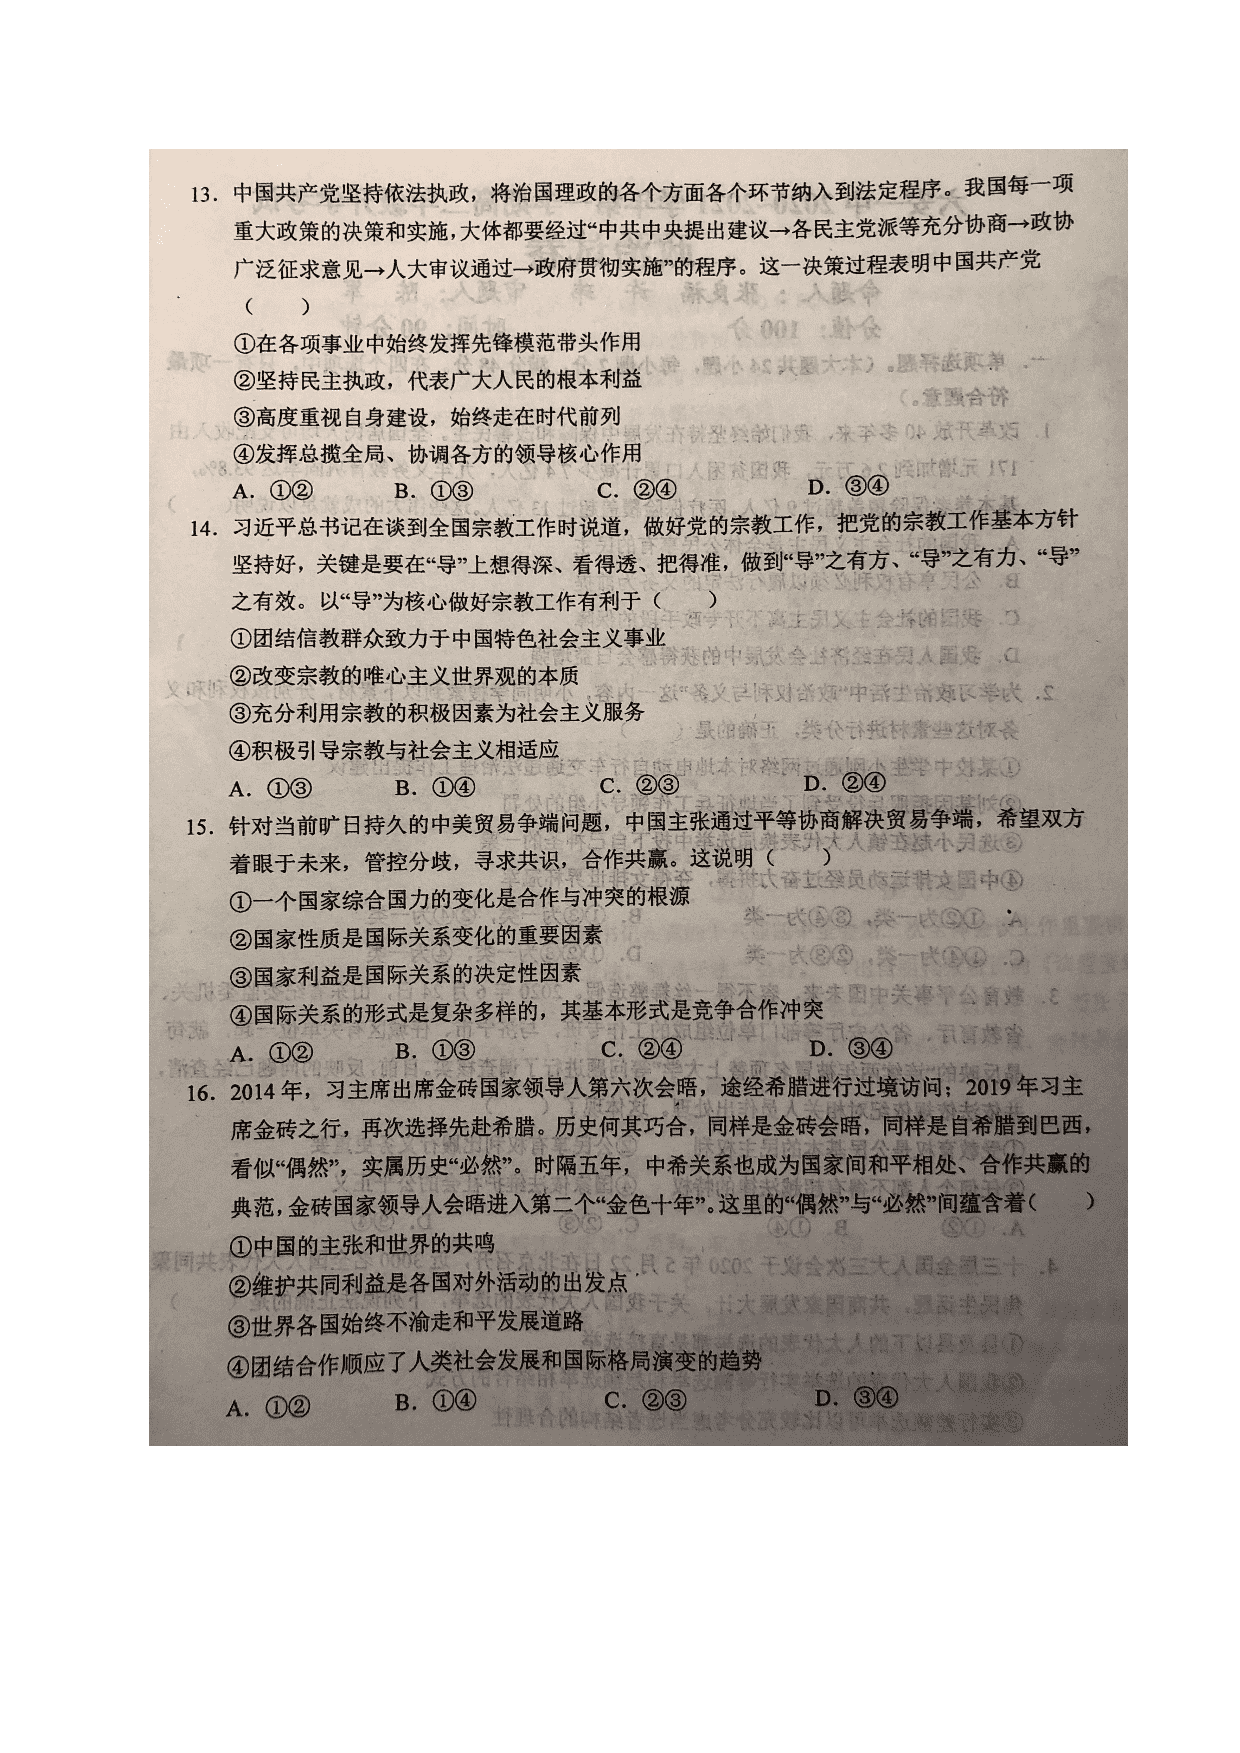 13．中国共产党坚持依法执政，将治国理政的各个方面各个环节纳入到法定程序。我国每一项
重大政策的决策和实施，大体都要经过“中共中央提出建议→各民主党派等充分协商→政协
广泛征求意见→人大审议通过→政府贯彻实施”的程序。这一决策过程表明中国共产党
（　　）
①在各项事业中始终发挥先锋模范带头作用
②坚持民主执政，代表广大人民的根本利益
③高度重视自身建设，始终走在时代前列
④发挥总揽全局、协调各方的领导核心作用
A．①②　B．①③　C．②④　D．③④
14．习近平总书记在谈到全国宗教工作时说道，做好党的宗教工作，把党的宗教工作基本方针
坚持好，关键是要在“导”上想得深、看得透、把得准，做到“导”之有方、“导”之有力、“导”
之有效。以“导”为核心做好宗教工作有利于（　　）
①团结信教群众致力于中国特色社会主义事业
②改变宗教的唯心主义世界观的本质
③充分利用宗教的积极因素为社会主义服务
④积极引导宗教与社会主义相适应
A．①③　B．①④　C．②③　D．②④
15．针对当前旷日持久的中美贸易争端问题，中国主张通过平等协商解决贸易争端，希望双方
着眼于未来，管控分歧，寻求共识，合作共赢。这说明（　　）
①一个国家综合国力的变化是合作与冲突的根源
②国家性质是国际关系变化的重要因素
③国家利益是国际关系的决定性因素
④国际关系的形式是复杂多样的，其基本形式是竞争合作冲突
A．①②　B．①③　C．②④　D．③④
16．2014年，习主席出席金砖国家领导人第六次会晤，途经希腊进行过境访问；2019年习主
席金砖之行，再次选择先赴希腊。历史何其巧合，同样是金砖会晤，同样是自希腊到巴西，
看似“偶然”，实属历史“必然”。时隔五年，中希关系也成为国家间和平相处、合作共赢的
典范，金砖国家领导人会晤进入第二个“金色十年”。这里的“偶然”与“必然”间蕴含着（　　）
①中国的主张和世界的共鸣
②维护共同利益是各国对外活动的出发点
③世界各国始终不渝走和平发展道路
④团结合作顺应了人类社会发展和国际格局演变的趋势
A．①②　B．①④　C．②③　D．③④